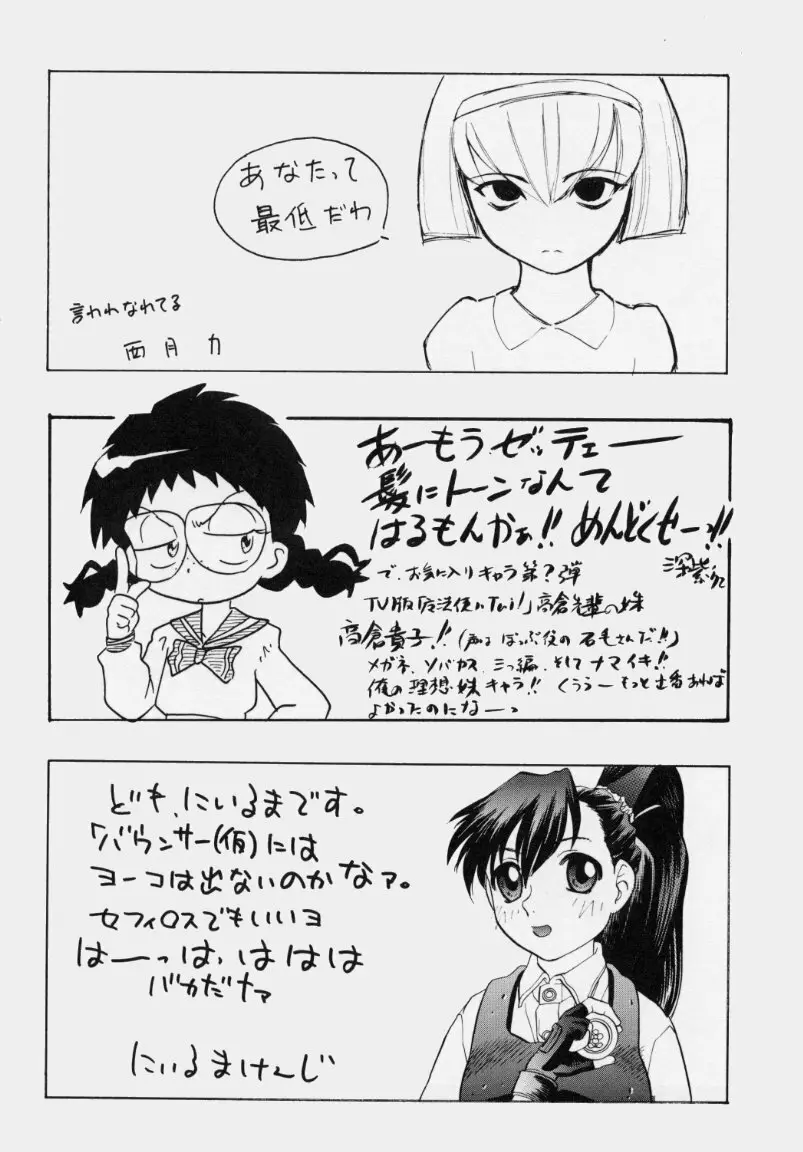 あなたって
最低だわ
言われなれてる
西月 力
あーもうゼッテェー
髪にトーンなんて
はるもんかぁ!! めんどくせーっ!!
深紫
で、お気に入りキャラ第?弾
TV版「魔法使いTai!」高倉先輩の妹
高倉貴子!! (声はぽっぷ役の石毛さんだ!!)
メガネ、ソバカス、三つ編、そしてナマイキ!!
俺の理想妹キャラ!! くうぅーもっと出番あれば
よかったのになーっ
ども、にいるまです。
「バウンサー(仮)には
ヨーコは出ないのかなァ。
セフィロスでもいいヨ
はーっは、ははは
バカだナァ
にいるまけーじ